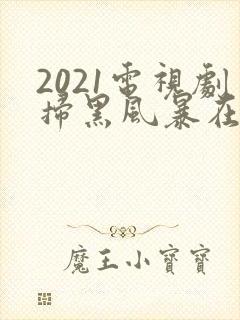 2021電視劇
掃黑風暴在
魔王小寶寶